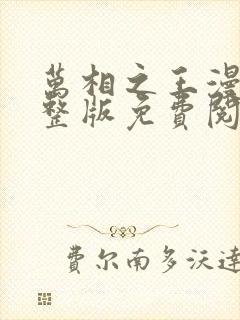 萬相之王漫
整版免費閱
費尔南多沃達